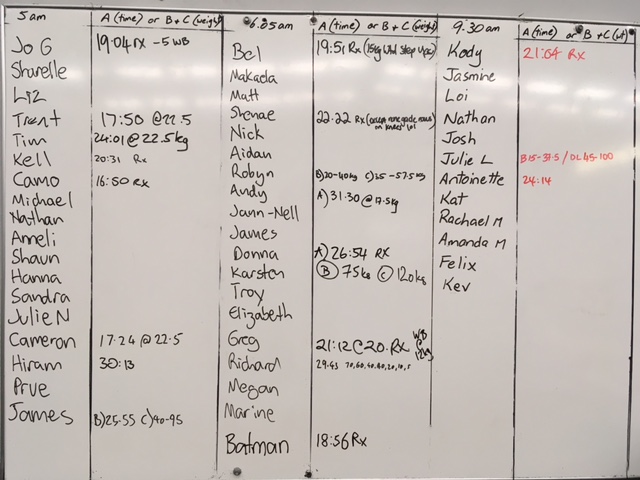 5am A (time) or B+C (weight) 6.05am A (time) or B+C (weight) 9:30am A (time) or B+C (wt)
Jo G 19:04 rx -5 WB
Sharelle
Liz
Trent 17:50 @ 22.5
Tim 24:01 @ 22.5kg
Kell 20:31 Rx
Camo 16:50 Rx
Michael
Nathan
Anneli
Shaun
Hanna
Sandra
Julie N
Cameron 17:24 @ 22.5
Hiram 30:13
Prue
James B) 25-55 C) 40-95
Bel 19:51 Rx (15kg Wtd Step Ups)
Makaela
Matt
Shenae 22.22 Rx (except renegade rows on knees lol)
Nick
Aidan
Robyn B) 20-40kg C) 35-57.5kg
Andy A) 31:30 @ 17.5kg
Jann-Nell
James
Donna A) 26:54 RX
Karsten B 75kg C 120kg
Troy
Elizabeth
Greg 21:12 @ 20. Rx WB @ 12kg
Richard 29.43 70,60,40,40,20,10,5
Megan
Marine
Batman 18:56 Rx
Kody 21:04 Rx
Jasmine
Loi
Nathan
Josh
Julie L B 15-37.5 / DL 45-100
Antoinette 24:14
Kat
Rachael M
Amanda M
Felix
Kev